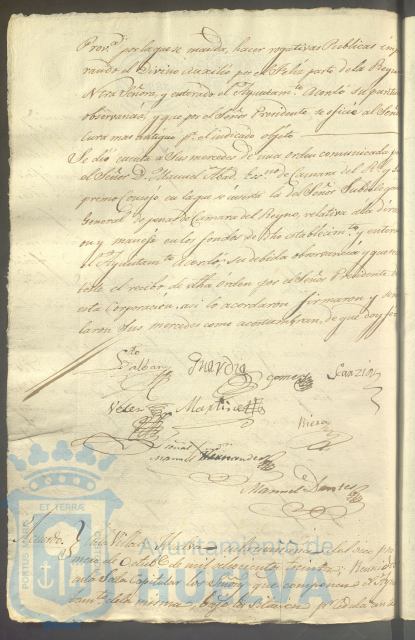 Prov.ª por la que se manda, hacer rogativas Publicas imp
rando el Divino Auxilio por el Feliz parto de la Reyna
Ntra Señora, y enterado el Ayuntam.to Acordó su puntual
observancia, y que por el Señor Presidente, se oficie al Señor
Cura mas antiguo p.ª el indicado objeto
Se dio cuenta a sus mercedes de una orden comunicada por
el Señor D. Manuel Abad, Ess.no de Camara del R.l y Su
premo Consejo en la que se inserta la del Señor Subdelegado
General de penas de Camara del Reyno, relativa a la direcci
on y manejo en los fondos de dho establecim.to y enterado
el Ayuntam.to acordó, su debida observancia y que se con
teste el recibo de dha órden por el Señor Presidente de
esta Corporacion. asi lo acordaron firmaron y seña
laron sus mercedes como acostumbran, de que doy fe
Guardia Gomez
Velez Martinez
Riera
Señal
Manuel Hernandez
Manuel
Acuerdo. En la Villa de Huelva
mero de Octub.e de mil ochocientos treinta. Reunidos
en la Sala Capitular los Señores que componen el Ayun
tam.to de la misma, bajo la p.r Cedula an
PORTUS MARIS ET TERRÆ
Ayuntamiento de
HUELVA